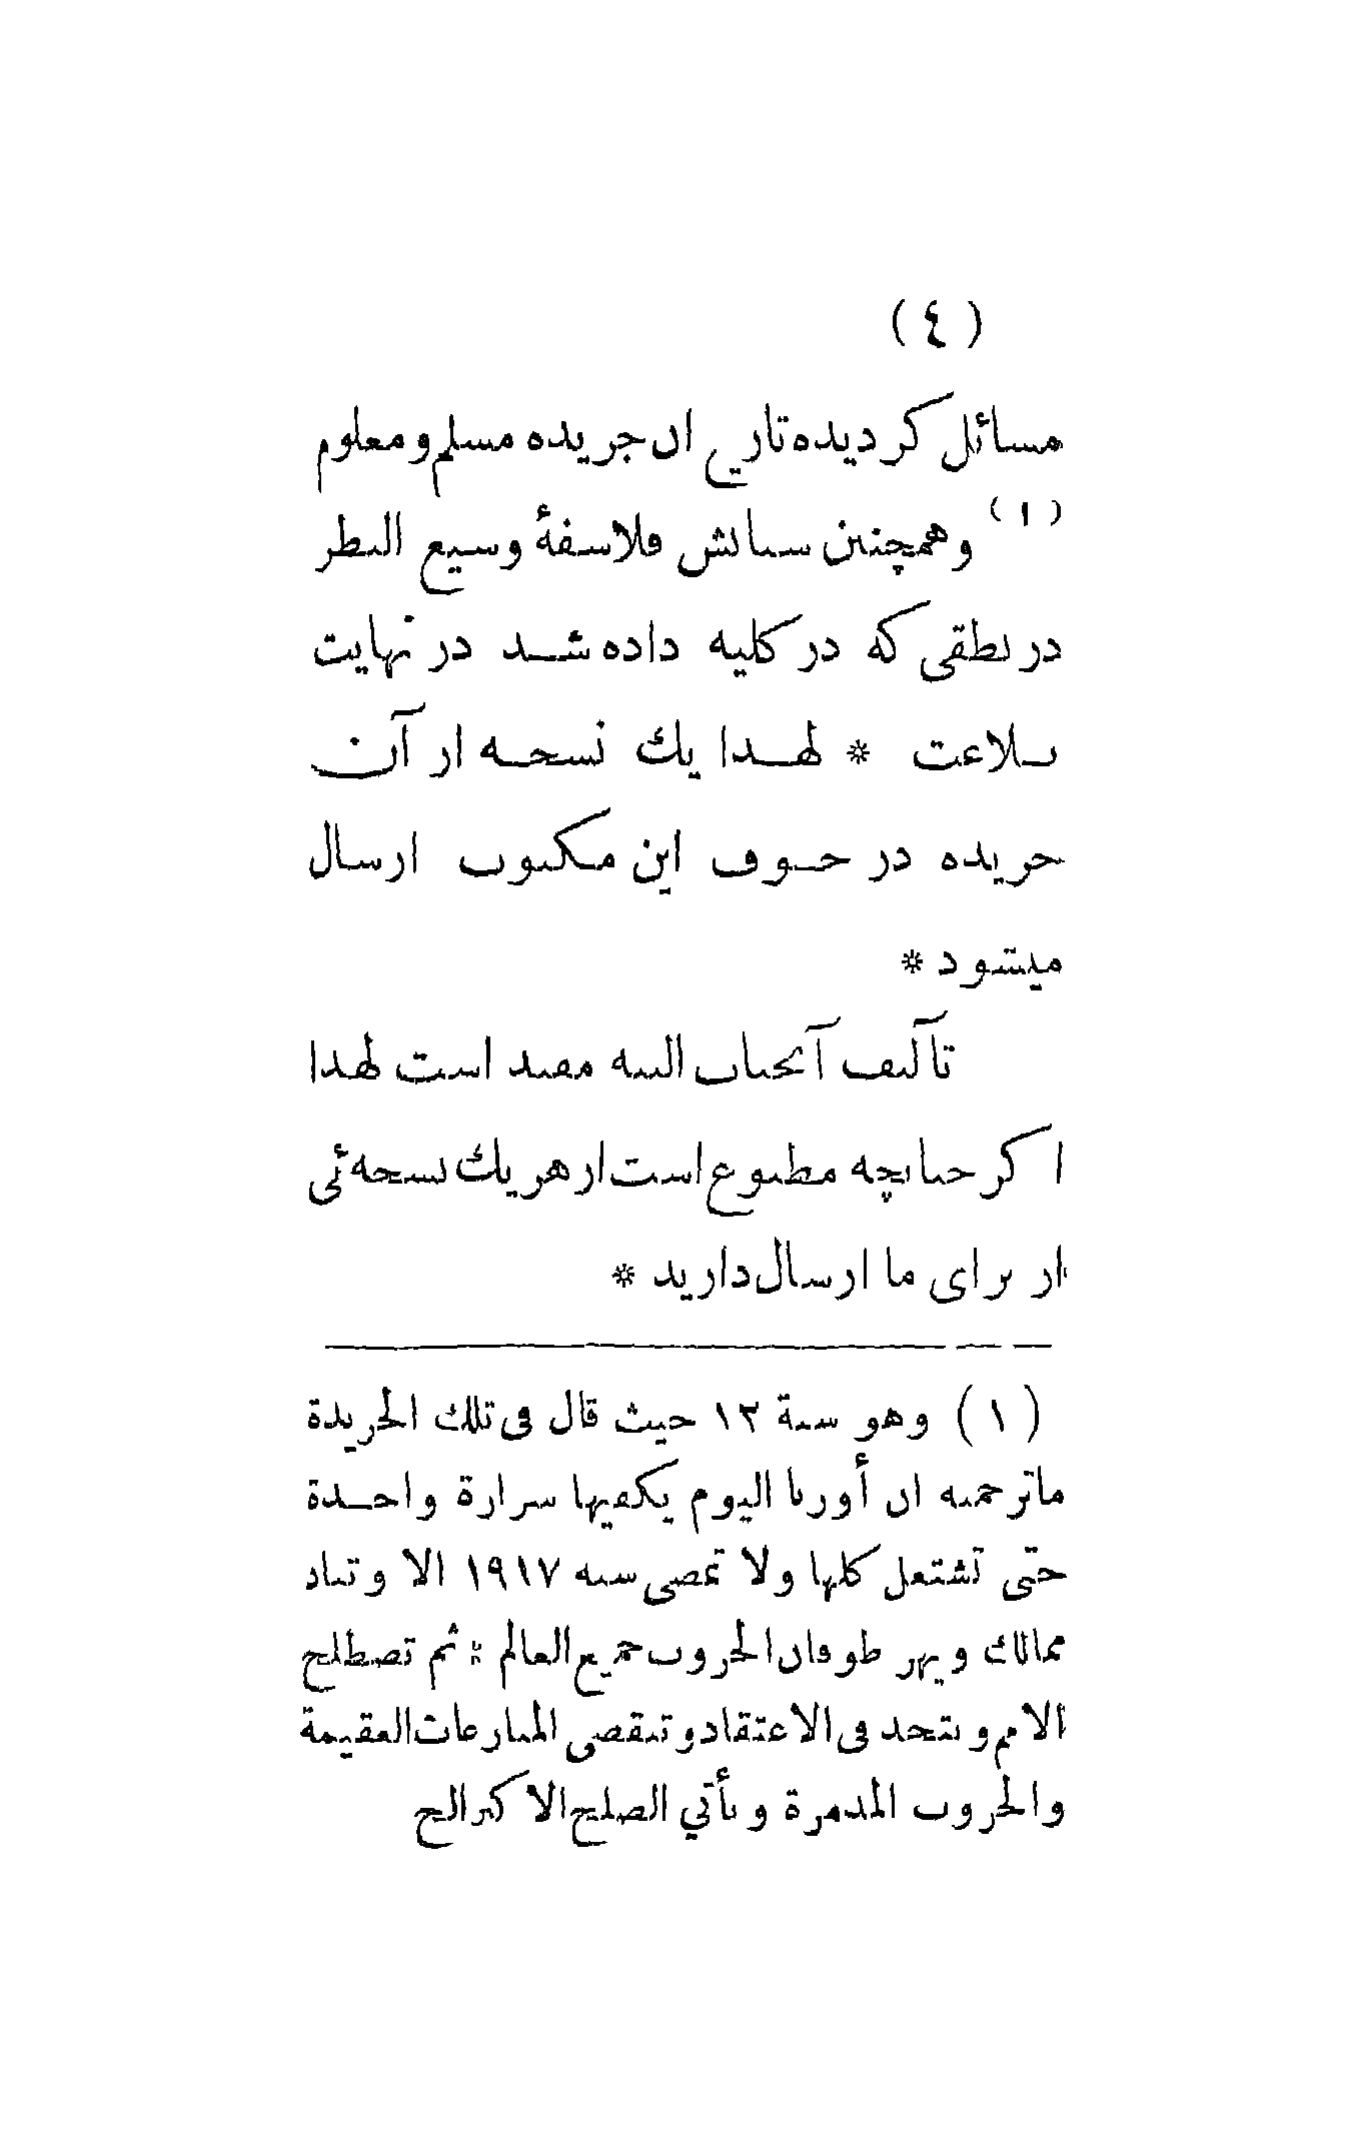 ( ٤ )
مسائل كرديده تاريخ ان جريده مسلم و معلوم
( ١ ) وهمچنين ستايش فلاسفۀ وسيع النظر
در نطقى كه در كليه داده شد در نهايت
بلاغت * لهذا يك نسخه از آن
جريده در جوف اين مكتوب ارسال
ميشود *
تآليف آنجناب البته مفيد است لهذا
اكر چنانچه مطبوع است از هر يك نسخه ئى
از براى ما ارسال داريد *
( ١ ) وهو سنة ١٢ حيث قال فى تلك الجريدة
ماترجمته ان أوربا اليوم يكفيها شرارة واحدة
حتى تشتعل كلها ولا تمضى سنه ١٩١٧ الا وتباد
ممالك ويهز طوفان الحروب جميع العالم * ثم تصطلح
الامم وتتحد فى الاعتقاد وتنقضى المنازعات العقيمة
والحروب المدمرة ويأتي الصلح الاكبر الخ